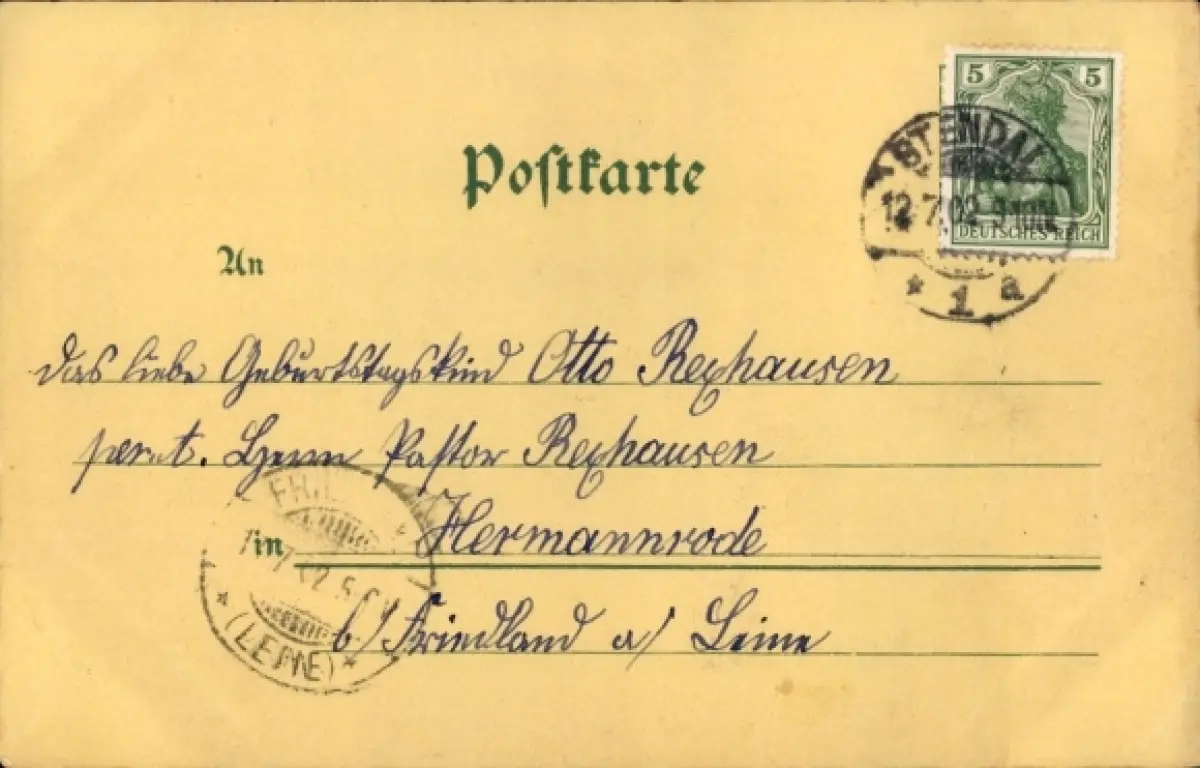 5 5
Postkarte
STENDAL
12.7.02.9-10V.
DEUTSCHES REICH
* 1 a
An
das liebe Geburtstagskind Otto Rexhausen
Herrn Pastor Rexhausen
in Hermannrode
b/ Friedland a/ Leine
7.02.5-6
* (LEINE) *